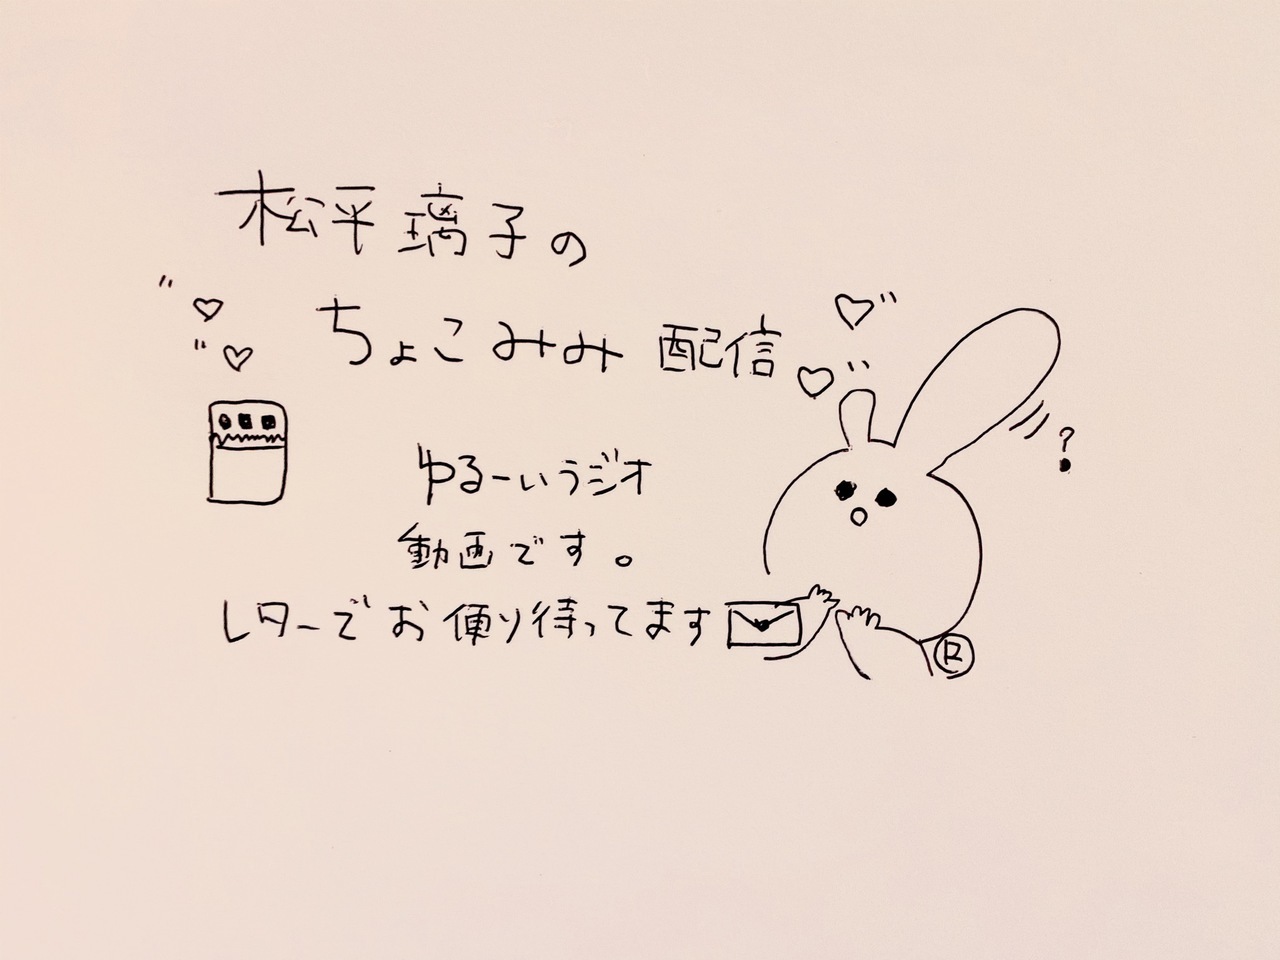 松平璃子の
ちょこみみ配信
ゆるーいラジオ
動画です。
レターでお便り待ってます
?
R